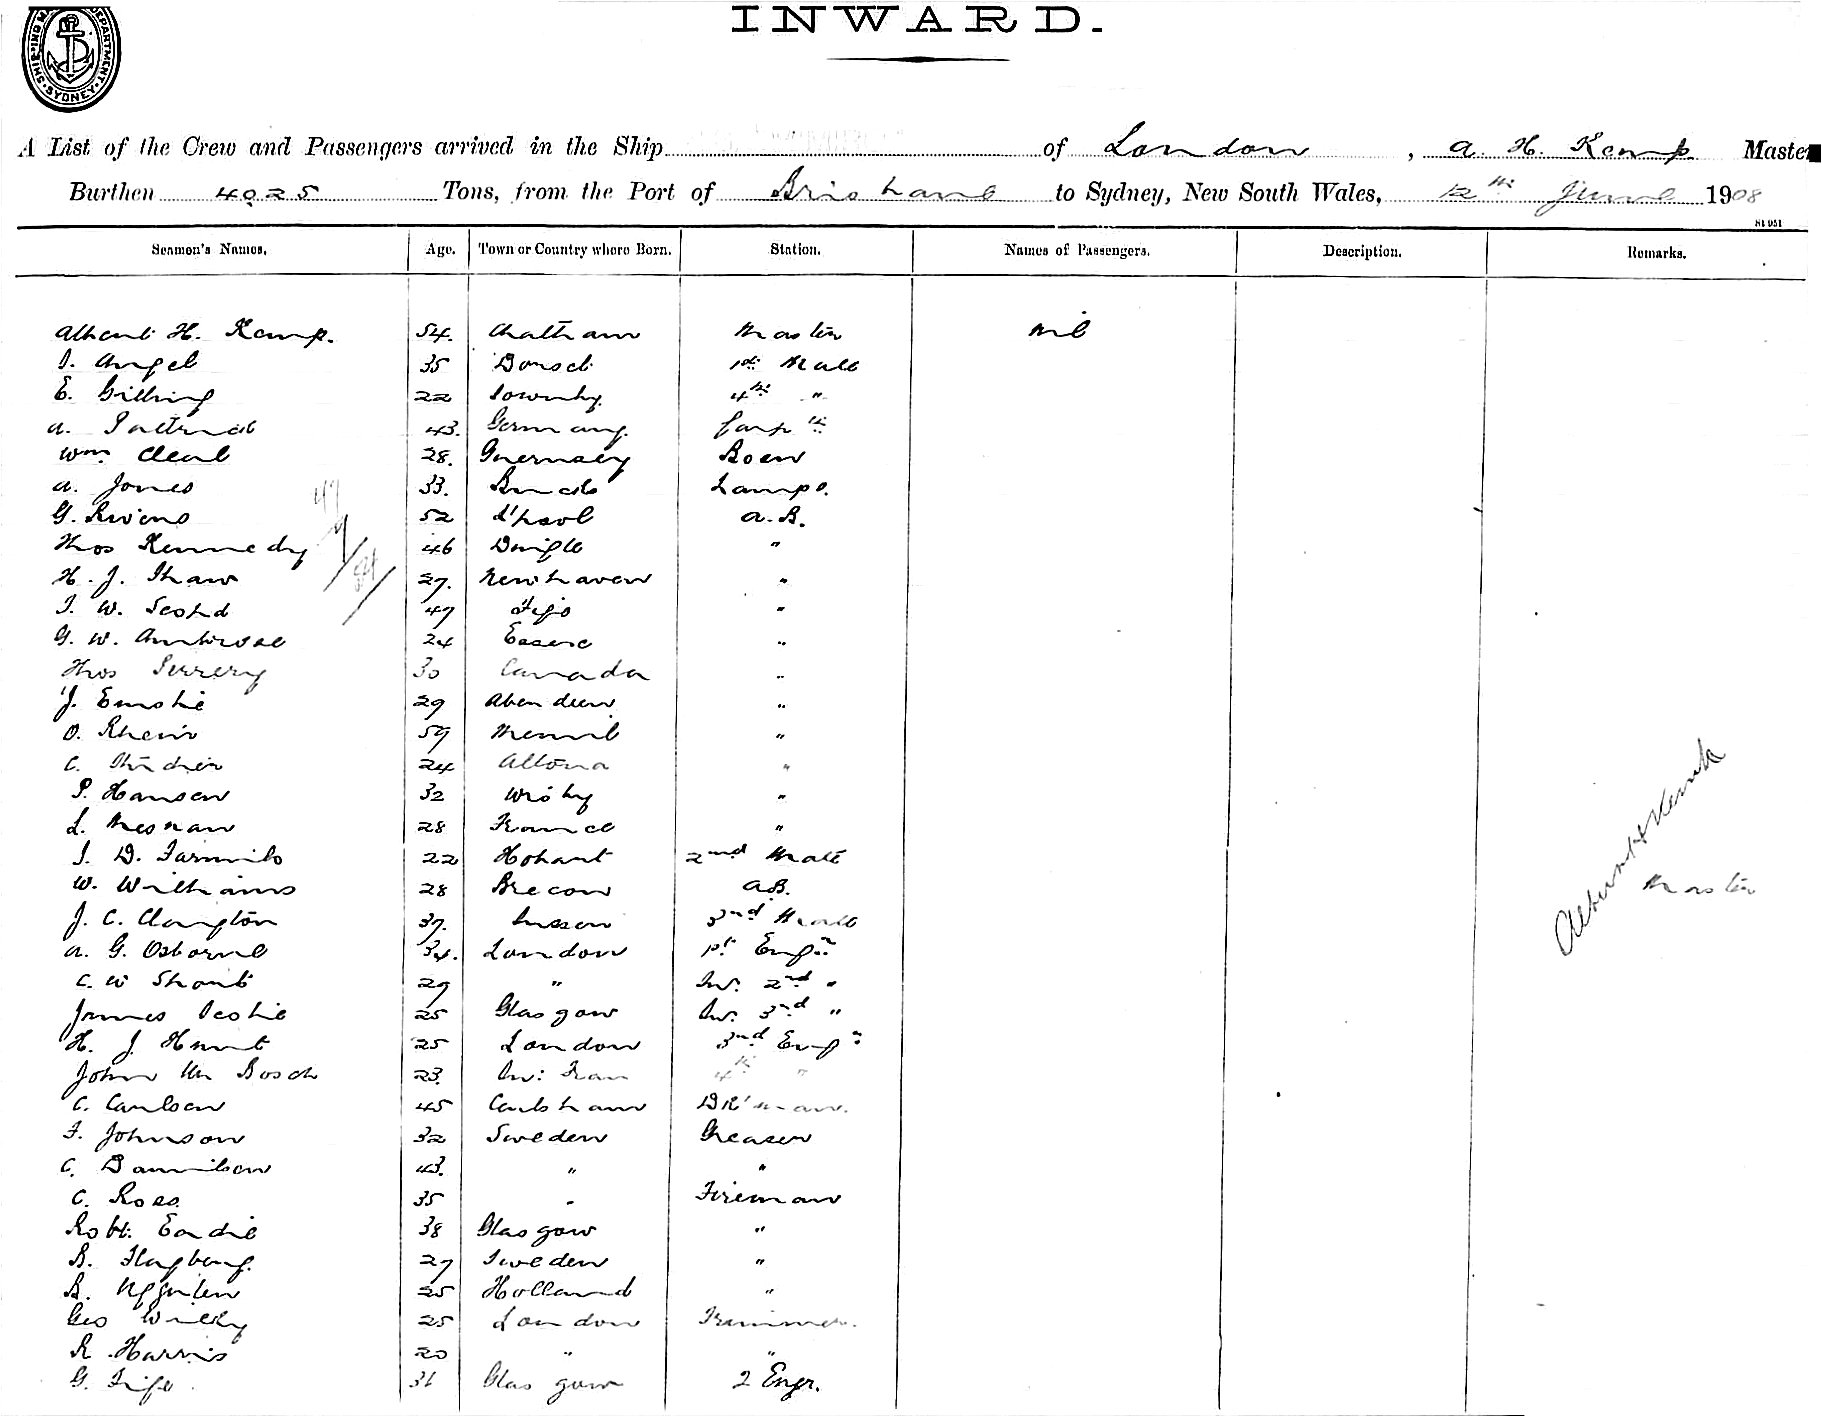 INWARD.
SHIPPING MASTER'S DEPARTMENT SYDNEY
A List of the Crew and Passengers arrived in the Ship of London, A. H. Kemp Master
Burthen 4025 Tons, from the Port of Brisbane to Sydney, New South Wales, 12th June 1908
81051
Seamen's Names. Age. Town or Country where Born. Station. Names of Passengers. Description. Remarks.
Albert H. Kemp. 54. Chatham Master Nil
Angel 35 Dorset 1st Mate
E. Gilling 22 4th "
A. 43. Germany.
Wm 28. Guernsey Bosn
A. Jones 33. Lamps.
G. 52 L'pool A.B.
Thos Kennedy 46 Dingle "
H. J. Thaw 27. Newhaven "
W. 47 "
G. W. Ambrose 24 Essex "
Thos 30 Canada "
J. Emslie 29 Aberdeen "
O. 59 Memel "
C. 24 Altona "
P. Hansen 32 "
L. 28 France "
D. 22 Hobart 2nd Mate
W. Williams 28 Brecon AB.
J. C. Clayton 37. Sussex 3rd Mate
A. G. Osborne 34. London 1st Engr
C. W 29 " 2nd "
James Leslie 25 Glasgow 3rd "
H. J. Hunt 25 London 3rd Engr
John Bosch 23. 4th "
C. Carlson 45 Dk'man.
F. Johnson 32 Sweden Greaser
C. 43. " "
C. Ross. 35 " Fireman
Robt. Eadie 38 Glasgow "
B. 27 Sweden "
B. 25 Holland "
Geo 25 London Trimmer.
R Harris 20 " "
G. Fife 31 Glasgow 2 Engr.
Albert H Kemp
Master